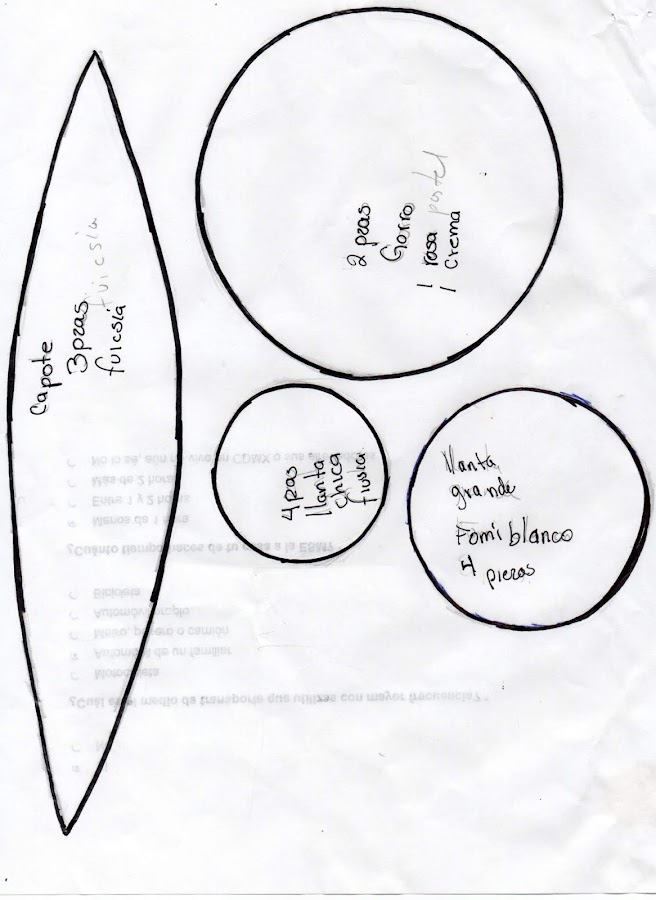 Capote
3 pzas
fuicsia
fuicsia
2 pzas
Gorro
1 rosa pastel
1 crema
4 pzas
llanta
chica
fiusia
llanta
grande
Fomi blanco
4 piezas
¿Cuál es el medio de transporte que utilizas con mayor frecuencia? *
Motocicleta
Automóvil de un familiar
Metro, pesero o camión
Automóvil propio
Bicicleta
¿Cuánto tiempo haces de tu casa a la
Menos de 1 hora
Entre 1 y 2 horas
Más de 2 horas
No lo sé, aún no vivo en CDMX o sus